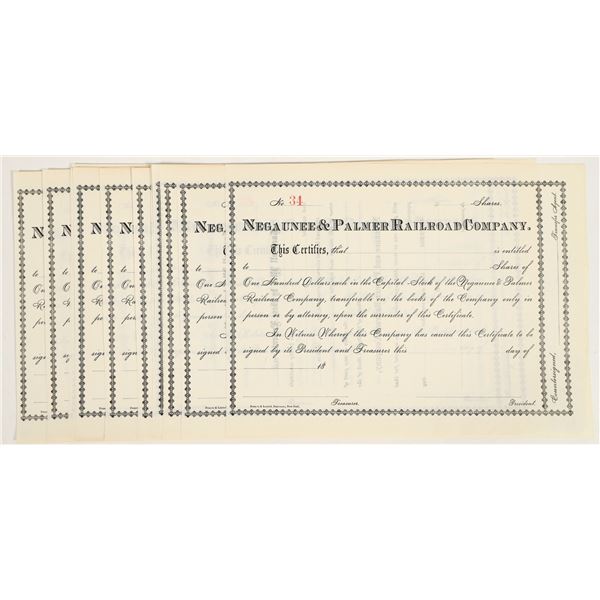 No. 34 Shares.
NEGAUNEE & PALMER RAILROAD COMPANY.
This Certifies, that is entitled
to Shares of
One Hundred Dollars each in the Capital Stock of the Negaunee & Palmer
Railroad Company, transferable on the books of the Company only in
person or by attorney, upon the surrender of this Certificate.
In Witness Whereof this Company has caused this Certificate to be
signed by its President and Treasurer this day of
18
Treasurer. President.
Countersigned, Transfer Agent.
NEG
T
to
One H
Railroad
person
signed
N
to
One
Rail
per
sign